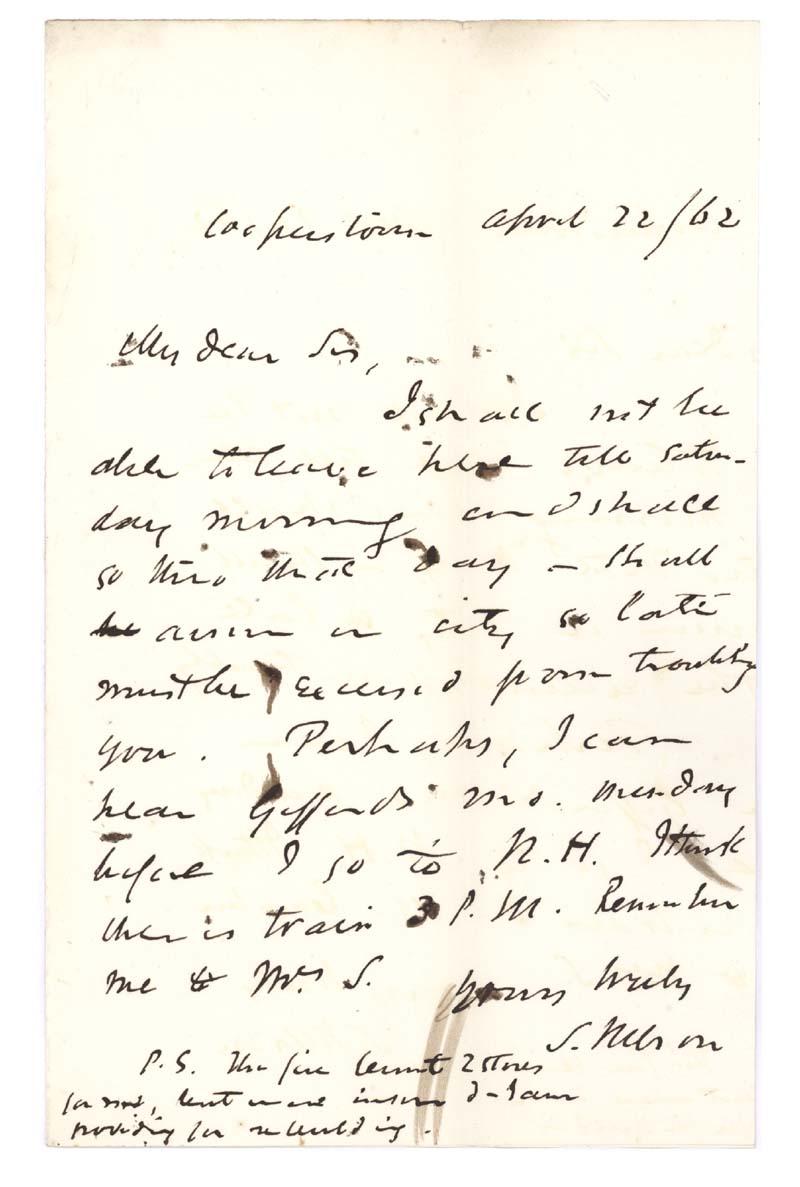 Cooperstown April 22/62
My dear Sir,
I shall not be
able to leave here till Satur-
day morning and shall
go thro that day – shall
arrive in city so late
must be excused from troubling
you. Perhaps, I can
hear Giffords mo. monday
before I go to N.H. I think
there is train 3 P.M. Remember
me to Mrs S.
Yours truly
S. Nelson
P.S. The fire burnt 2 stores
for me, but were insured – I am
providing for rebuilding.